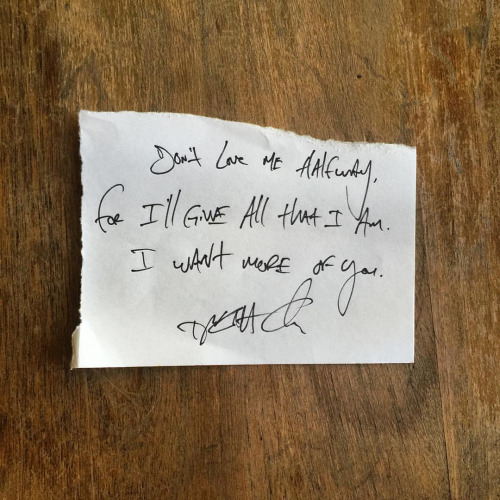 Don't Love me Halfway,
for I'll Give All that I Am.
I want more of you.